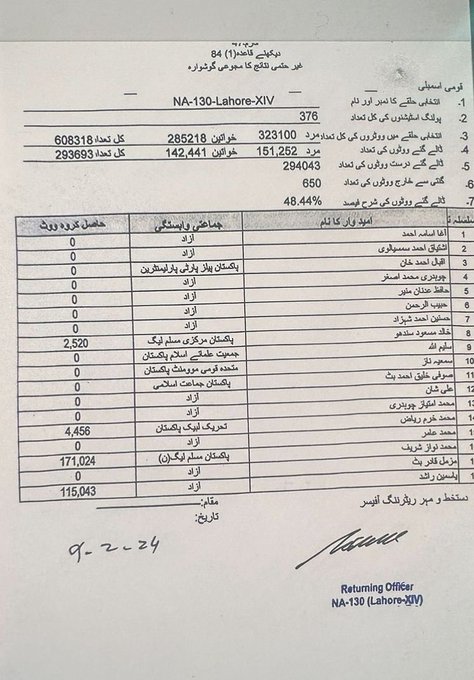 دیکھئے قاعدہ(1) 84
غیر حتمی نتائج کا مجموعی گوشوارہ
قومی اسمبلی
1. انتخابی حلقے کا نمبر اور نام NA-130-Lahore-XIV
2. پولنگ اسٹیشنوں کی کل تعداد 376
3. انتخابی حلقے میں ووٹروں کی کل تعداد مرد 323100 خواتین 285218 کل تعداد 608318
4. ڈالے گئے ووٹوں کی تعداد مرد 151,252 خواتین 142,441 کل تعداد 293693
5. ڈالے گئے درست ووٹوں کی تعداد 294043
6. گنتی سے خارج ووٹوں کی تعداد 650
7. ڈالے گئے ووٹوں کی شرح فیصد 48.44%
سلسلہ امید وار کا نام جماعتی وابستگی حاصل کردہ ووٹ
1 آغا اسامہ احمد آزاد 0
2 اشتیاق احمد سمسیالوی آزاد 0
3 اقبال احمد خان پاکستان پیپلز پارٹی پارلیمنٹیرین 0
4 چوہدری محمد اصغر آزاد 0
5 حافظ عدنان منیر آزاد 0
6 حبیب الرحمن آزاد 0
7 حسنین احمد شہزاد آزاد 0
8 خالد مسعود سندھو پاکستان مرکزی مسلم لیگ 2,520
9 سلیم اللہ جمعیت علمائے اسلام پاکستان 0
10 سمیعہ ناز متحدہ قومی موومنٹ پاکستان 0
11 صوفی خلیق احمد بٹ پاکستان جماعت اسلامی 0
12 علی شان آزاد 0
13 محمد امتیاز چوہدری آزاد 0
محمد خرم ریاض تحریک لبیک پاکستان 4,456
محمد عامر آزاد 0
محمد نواز شریف پاکستان مسلم لیگ(ن) 171,024
مزمل قادر بٹ آزاد 0
یاسمین راشد آزاد 115,043
دستخط و مہر ریٹرننگ آفیسر
مقام:
تاریخ:
9-2-24
Returning Officer
NA-130 (Lahore-XIV)